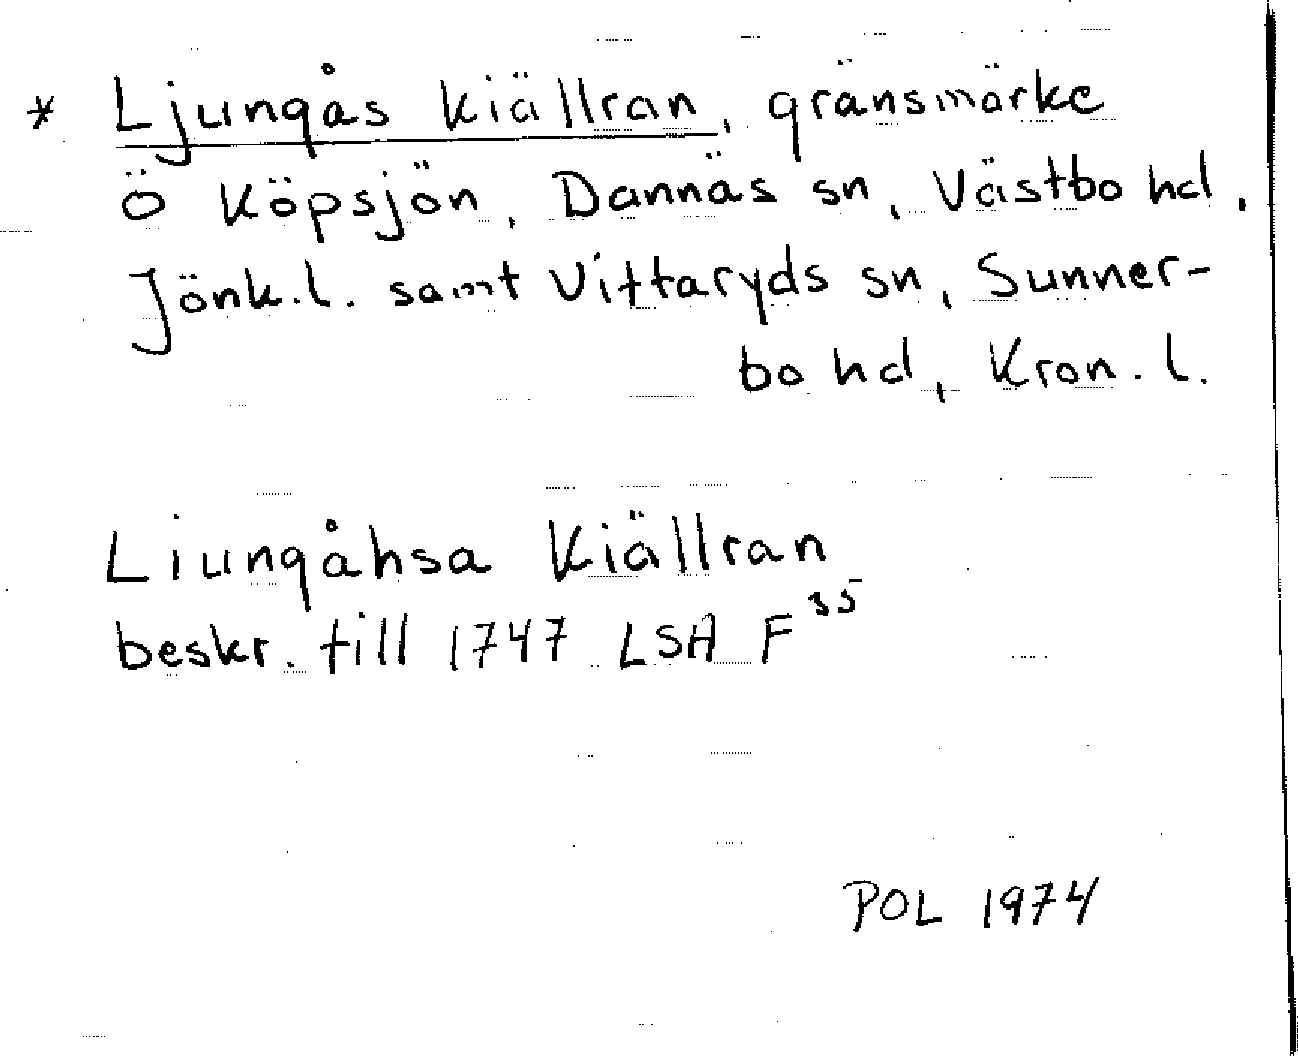 * Ljungås Kiällran, gränsmärke
Ö Köpsjön, Dannäs sn, Västbo hd,
Jönk.l. samt Vittaryds sn, Sunner-
bo hd, Kron.l.
Liungåhsa Kiällran
beskr. till 1747 LSA F³⁵
POL 1974